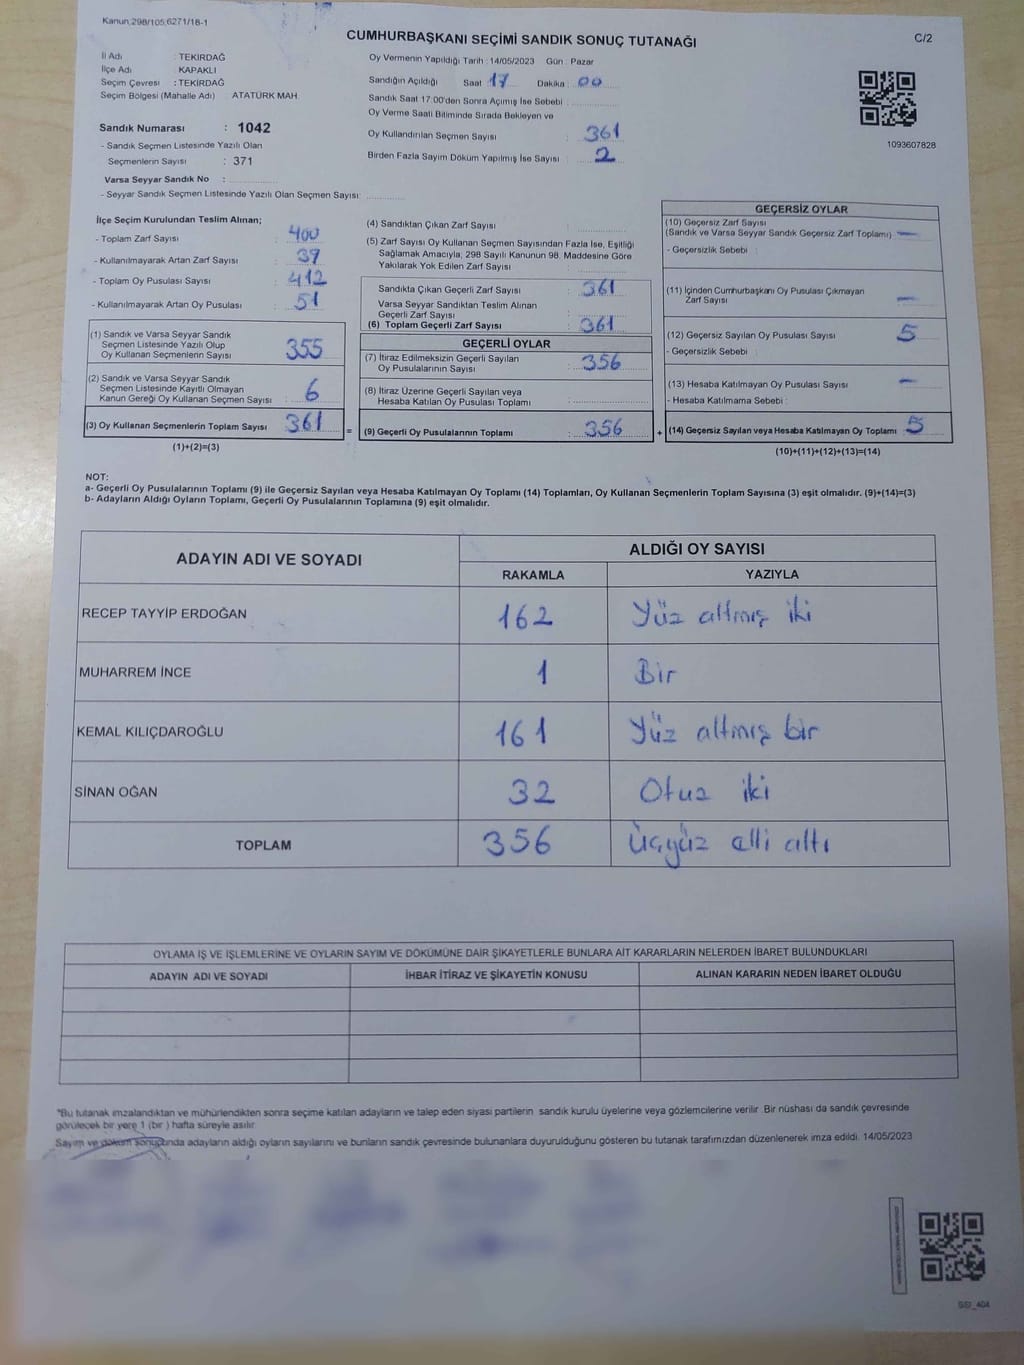 Kanun;298/105;6271/18-1
CUMHURBAŞKANI SEÇİMİ SANDIK SONUÇ TUTANAĞI
C/2
İl Adı : TEKİRDAĞ
İlçe Adı : KAPAKLI
Seçim Çevresi : TEKİRDAĞ
Seçim Bölgesi (Mahalle Adı) ATATÜRK MAH.
Sandık Numarası : 1042
- Sandık Seçmen Listesinde Yazılı Olan
Seçmenlerin Sayısı : 371
Varsa Seyyar Sandık No :
- Seyyar Sandık Seçmen Listesinde Yazılı Olan Seçmen Sayısı:
Oy Vermenin Yapıldığı Tarih : 14/05/2023 Gün : Pazar
Sandığın Açıldığı Saat : 17 Dakika : 00
Sandık Saat 17:00'den Sonra Açımış İse Sebebi :
Oy Verme Saati Bitiminde Sırada Bekleyen ve
Oy Kullandırılan Seçmen Sayısı : 361
Birden Fazla Sayım Döküm Yapılmış İse Sayısı : 2
1093607828
İlçe Seçim Kurulundan Teslim Alınan;
- Toplam Zarf Sayısı : 400
- Kullanılmayarak Artan Zarf Sayısı : 39
- Toplam Oy Pusulası Sayısı : 412
- Kullanılmayarak Artan Oy Pusulası : 51
(1) Sandık ve Varsa Seyyar Sandık
Seçmen Listesinde Yazılı Olup
Oy Kullanan Seçmenlerin Sayısı : 355
(2) Sandık ve Varsa Seyyar Sandık
Seçmen Listesinde Kayıtlı Olmayan
Kanun Gereği Oy Kullanan Seçmen Sayısı : 6
(3) Oy Kullanan Seçmenlerin Toplam Sayısı : 361
(1)+(2)=(3)
(4) Sandıktan Çıkan Zarf Sayısı :
(5) Zarf Sayısı Oy Kullanan Seçmen Sayısından Fazla İse, Eşitliği
Sağlamak Amacıyla; 298 Sayılı Kanunun 98. Maddesine Göre
Yakılarak Yok Edilen Zarf Sayısı :
Sandıkta Çıkan Geçerli Zarf Sayısı : 361
Varsa Seyyar Sandıktan Teslim Alınan
Geçerli Zarf Sayısı :
(6) Toplam Geçerli Zarf Sayısı : 361
GEÇERLİ OYLAR
(7) İtiraz Edilmeksizin Geçerli Sayılan
Oy Pusulalarının Sayısı : 356
(8) İtiraz Üzerine Geçerli Sayılan veya
Hesaba Katılan Oy Pusulası Toplamı :
= (9) Geçerli Oy Pusulalarının Toplamı : 356
GEÇERSİZ OYLAR
(10) Geçersiz Zarf Sayısı
(Sandık ve Varsa Seyyar Sandık Geçersiz Zarf Toplamı) : —
- Geçersizlik Sebebi :
(11) İçinden Cumhurbaşkanı Oy Pusulası Çıkmayan
Zarf Sayısı : —
(12) Geçersiz Sayılan Oy Pusulası Sayısı : 5
- Geçersizlik Sebebi :
(13) Hesaba Katılmayan Oy Pusulası Sayısı : —
- Hesaba Katılmama Sebebi :
+ (14) Geçersiz Sayılan veya Hesaba Katılmayan Oy Toplamı : 5
(10)+(11)+(12)+(13)=(14)
NOT:
a- Geçerli Oy Pusulalarının Toplamı (9) ile Geçersiz Sayılan veya Hesaba Katılmayan Oy Toplamı (14) Toplamları, Oy Kullanan Seçmenlerin Toplam Sayısına (3) eşit olmalıdır. (9)+(14)=(3)
b- Adayların Aldığı Oyların Toplamı, Geçerli Oy Pusulalarının Toplamına (9) eşit olmalıdır.
ADAYIN ADI VE SOYADI ALDIĞI OY SAYISI
RAKAMLA YAZIYLA
RECEP TAYYİP ERDOĞAN 162 Yüz altmış iki
MUHARREM İNCE 1 Bir
KEMAL KILIÇDAROĞLU 161 Yüz altmış bir
SİNAN OĞAN 32 Otuz iki
TOPLAM 356 Üçyüz elli altı
OYLAMA İŞ VE İŞLEMLERİNE VE OYLARIN SAYIM VE DÖKÜMÜNE DAİR ŞİKAYETLERLE BUNLARA AİT KARARLARIN NELERDEN İBARET BULUNDUKLARI
ADAYIN ADI VE SOYADI İHBAR İTİRAZ VE ŞİKAYETİN KONUSU ALINAN KARARIN NEDEN İBARET OLDUĞU
*Bu tutanak imzalandıktan ve mühürlendikten sonra seçime katılan adayların ve talep eden siyasi partilerin sandık kurulu üyelerine veya gözlemcilerine verilir. Bir nüshası da sandık çevresinde
görülecek bir yere 1 (bir ) hafta süreyle asılır.
Sayım ve döküm sonucunda adayların aldığı oyların sayılarını ve bunların sandık çevresinde bulunanlara duyurulduğunu gösteren bu tutanak tarafımızdan düzenlenerek imza edildi. 14/05/2023